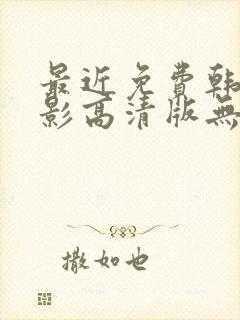 最近免费韩
影高清版無
撒如也